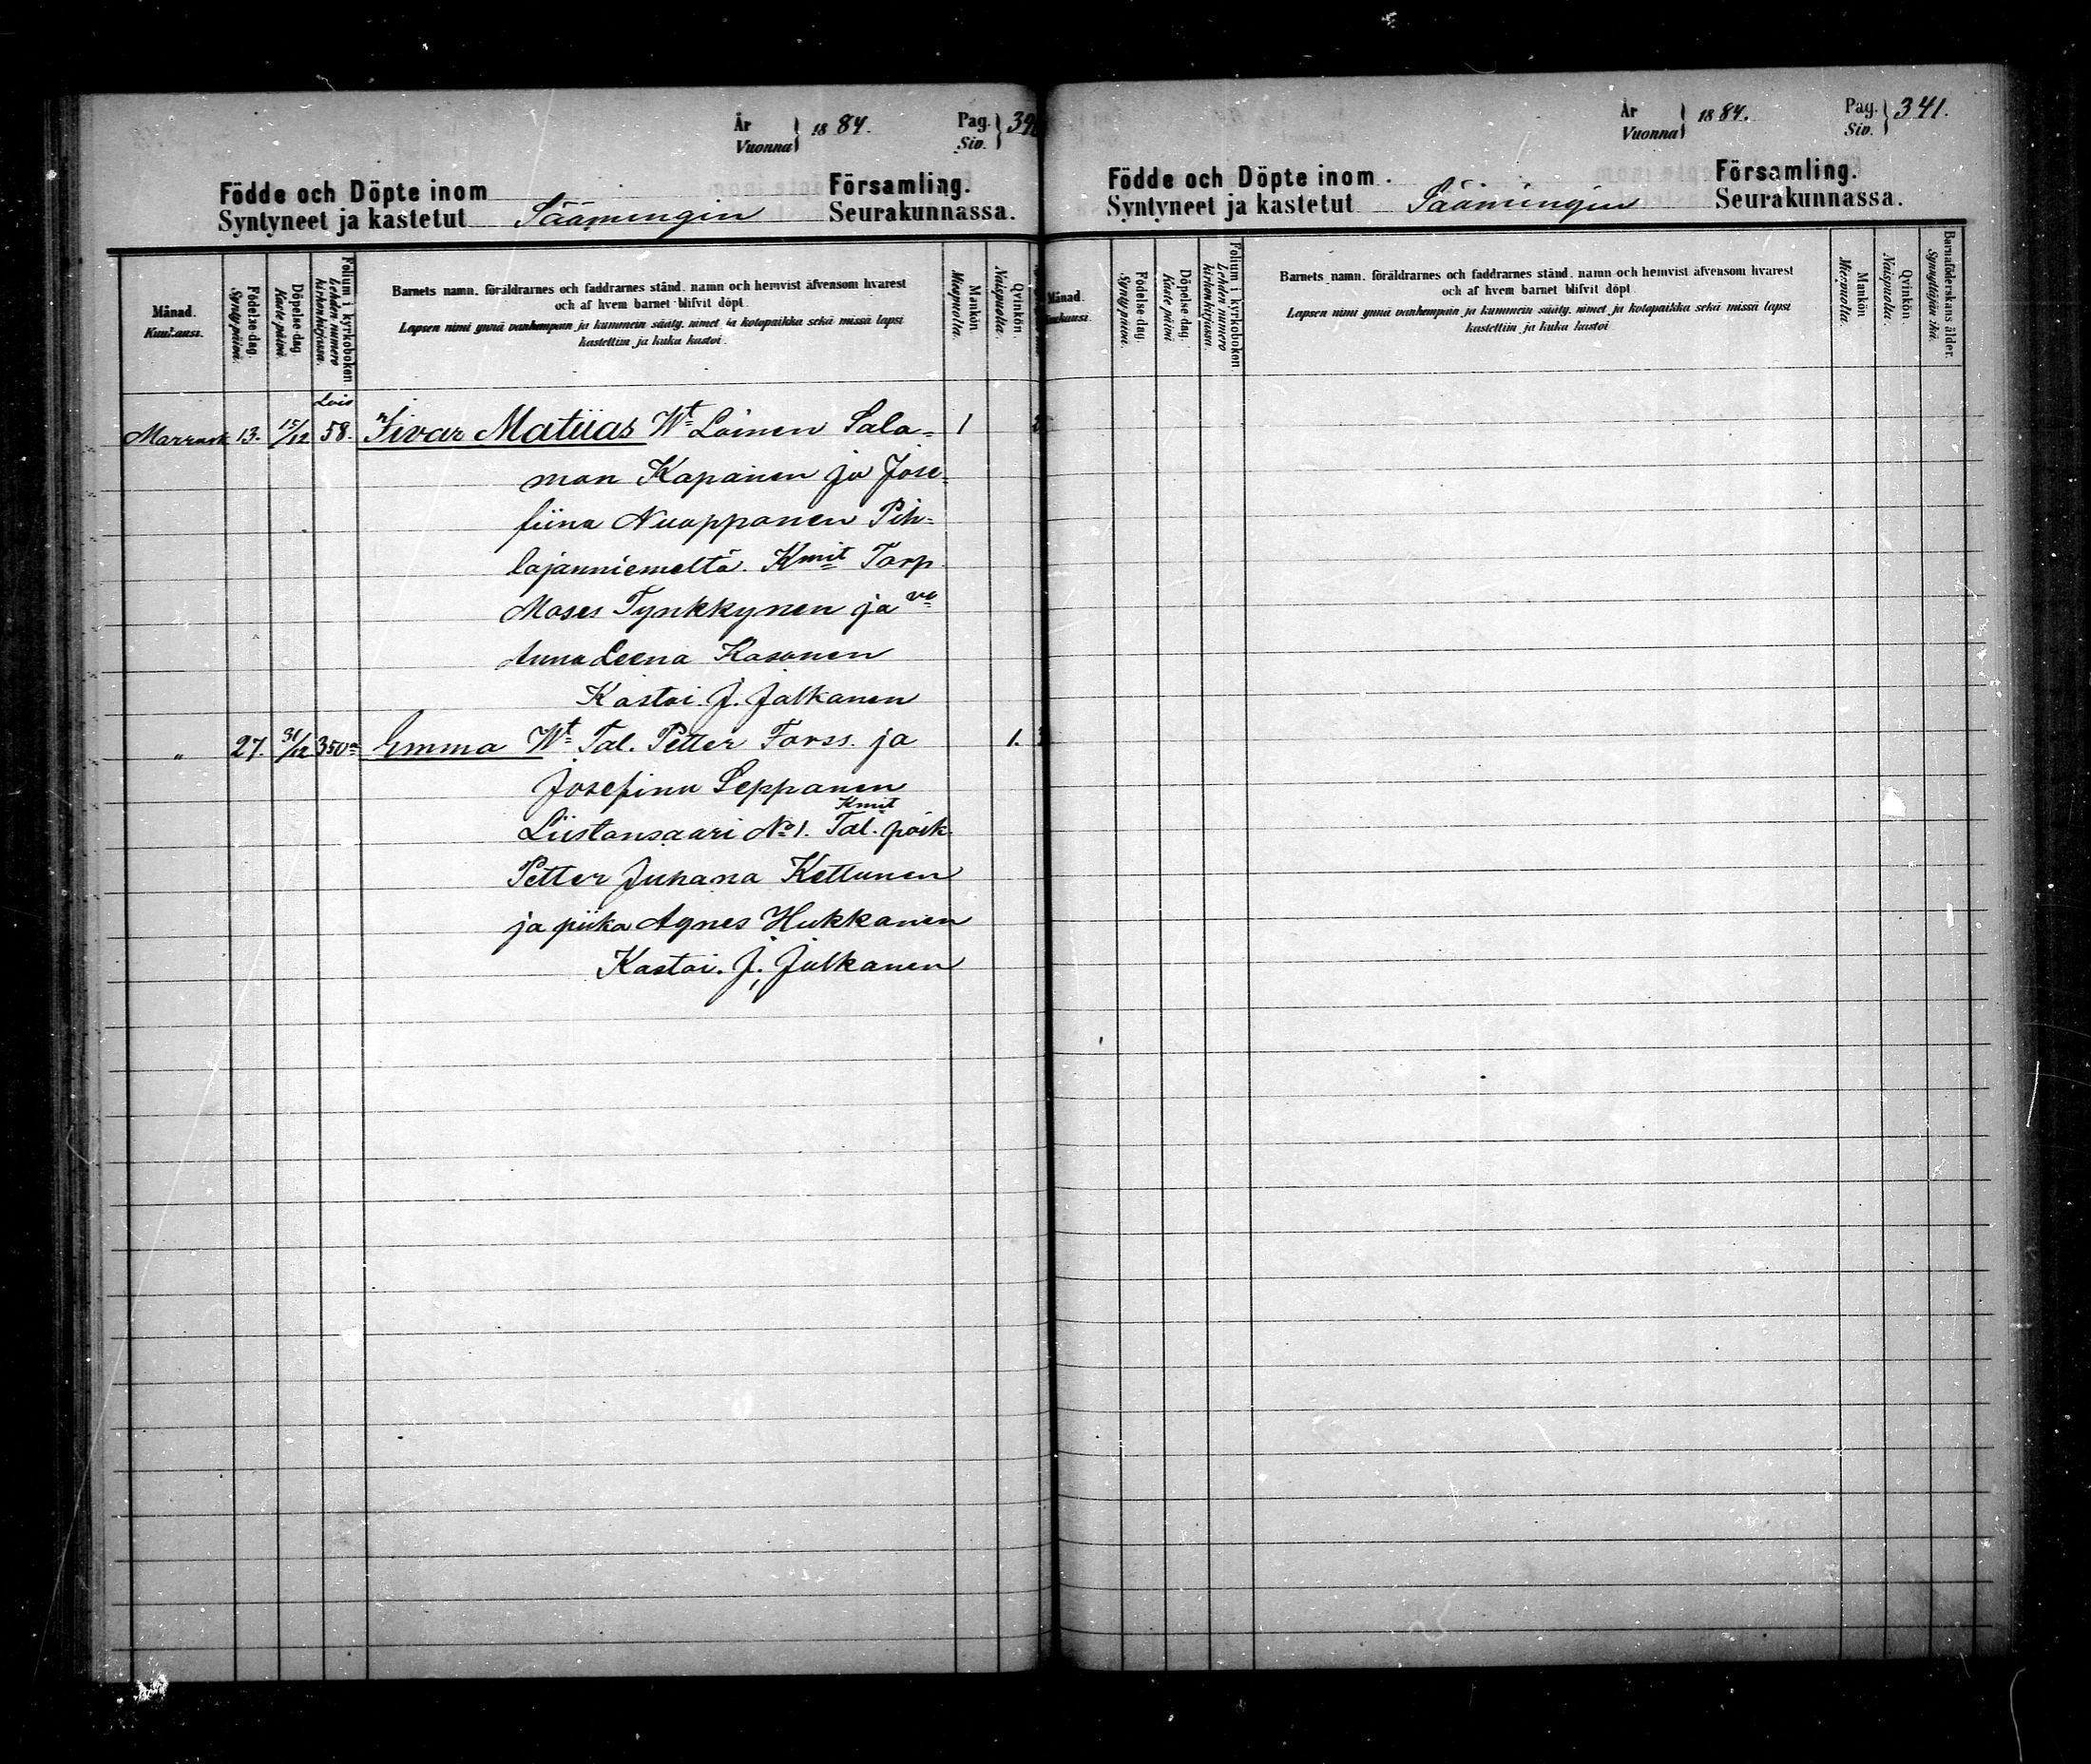 År Vuonna } 1884. Pag. Siv. } 34
Födde och Döpte inom Församling.
Syntyneet ja kastetut Säämingin Seurakunnassa.
Månad. Kuukausi.
Födelse-dag. Syntypäivä.
Döpelse-dag. Kastepäivä.
Folium i kyrkoboken. Lehden numero kirkonkirjassa.
Barnets namn, föräldrarnes och faddrarnes stånd, namn och hemvist äfvensom hvarest
och af hvem barnet blifvit döpt.
Lapsen nimi ynnä vanhempain ja kummein sääty, nimet ja kotopaikka sekä missä lapsi
kastettiin ja kuka kastoi.
Mankön Miespuolta.
Qvinkön. Naispuolta.
Lois
Marrask 13. 15/12 58. Iivar Matiias Wt Loinen Salo- 1
mon Kapanen ja Jose-
fiina Nuopponen Pih-
lajanniemeltä. Kmit Torp
Moses Tynkkynen ja vo
Anna Leena Kasonen
Kastoi. J. Jalkanen
" 27. 31/12 350 Emma Wt Tal. Petter Forss. ja 1.
Josefina Seppanen
Kmit
Liistonsaari No 1. Tal. poik
Petter Juhana Kettunen
ja piika Agnes Hukkanen
Kastoi. J. Jalkanen
År Vuonna } 1884. Pag. Siv. } 341.
Födde och Döpte inom Församling.
Syntyneet ja kastetut Säämingin Seurakunnassa.
Månad.
Födelse-dag. Syntypäivä.
Döpelse-dag. Kastepäivä
Folium i kyrkoboken. Lehden numero kirkonkirjassa.
Barnets namn, föräldrarnes och faddrarnes stånd, namn och hemvist äfvensom hvarest
och af hvem barnet blifvit döpt.
Lapsen nimi ynnä vanhempain ja kummein sääty, nimet ja kotopaikka sekä missä lapsi
kastettiin ja kuka kastoi
Mankön Miespuolta.
Qvinkön. Naispuolta.
Barnaföderskans ålder. Synnyttäjän ikä.